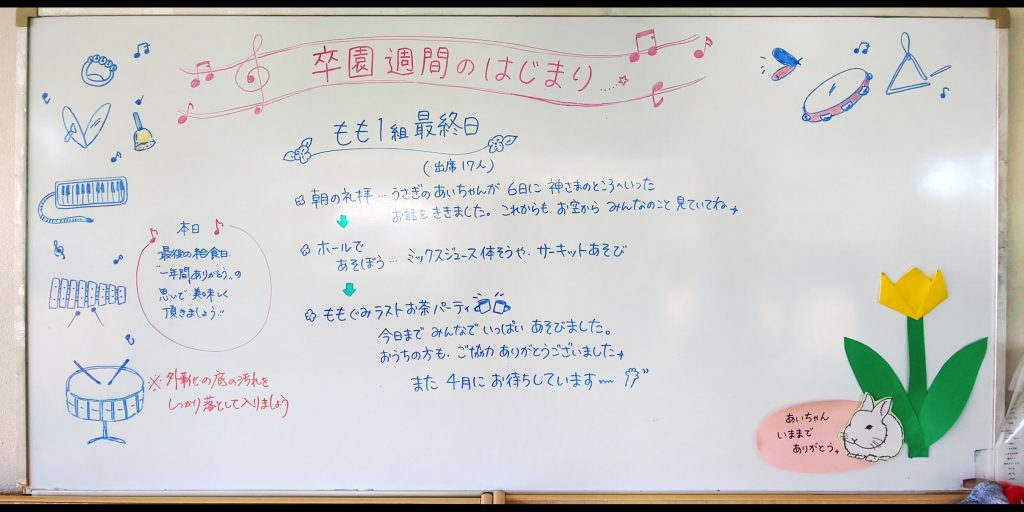 卒園週間のはじまり....☆
もも1組 最終日
(出席17人)
朝の礼拝…うさぎのあいちゃんが 6日に 神さまのところへいった
お話をききました。これからも お空から みんなのこと 見ていてね
ホールで
あそぼう… ミックスジュース体そうや、サーキットあそび
ももぐみラストお茶パーティ
今日まで みんなで いっぱい あそびました。
おうちの方も、ご協力 ありがとうございました
また 4月に お待ちしています〜
本日
最後の給食日
"一年間ありがとう"の
思いで 美味しく
頂きましょう!!
※外靴の底の汚れを
しっかり落として入りましょう
あいちゃん
いままで
ありがとう